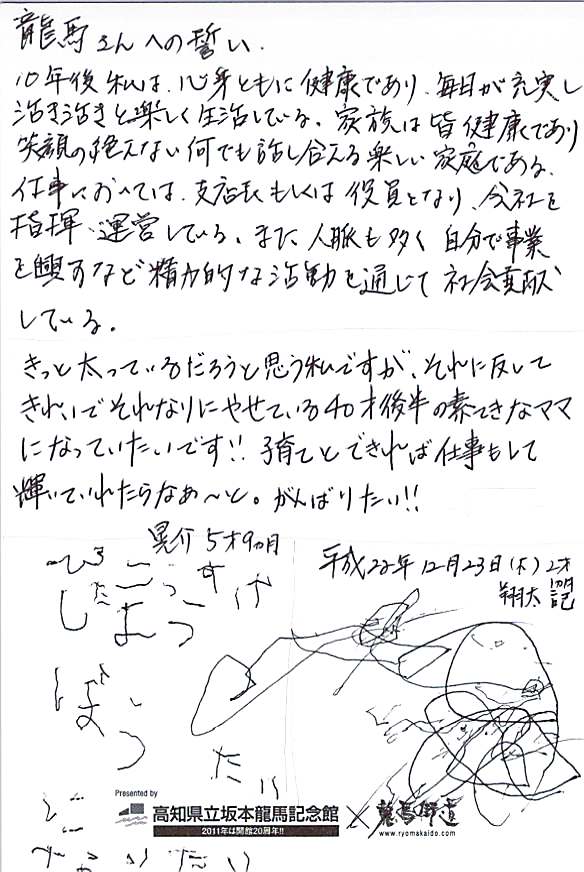 龍馬さんへの誓い.
10年後私は、心身ともに健康であり、毎日が充実し
活き活きと楽しく生活している。家族は皆健康であり
笑顔の絶えない何でも話し合える楽しい家庭である。
仕事においては、支店長もしくは役員となり、会社を
指揮、運営している。また人脈も多く自分で事業
を興すなど精力的な活動を通じて社会貢献
している。
きっと太っているだろうと思う私ですが、それに反して
きれいでそれなりにやせている40才後半の素てきなママ
になっていたいです!!子育てとできれば仕事もして
輝いていれたらなぁ〜と。がんばりたい!!
晃介 5才9ヵ月
平成22年12月23日(木)2才
翔太 記
Presented by
高知県立坂本龍馬記念館
2011年は開館20周年!!
×
龍馬街道
www.ryomakaido.com